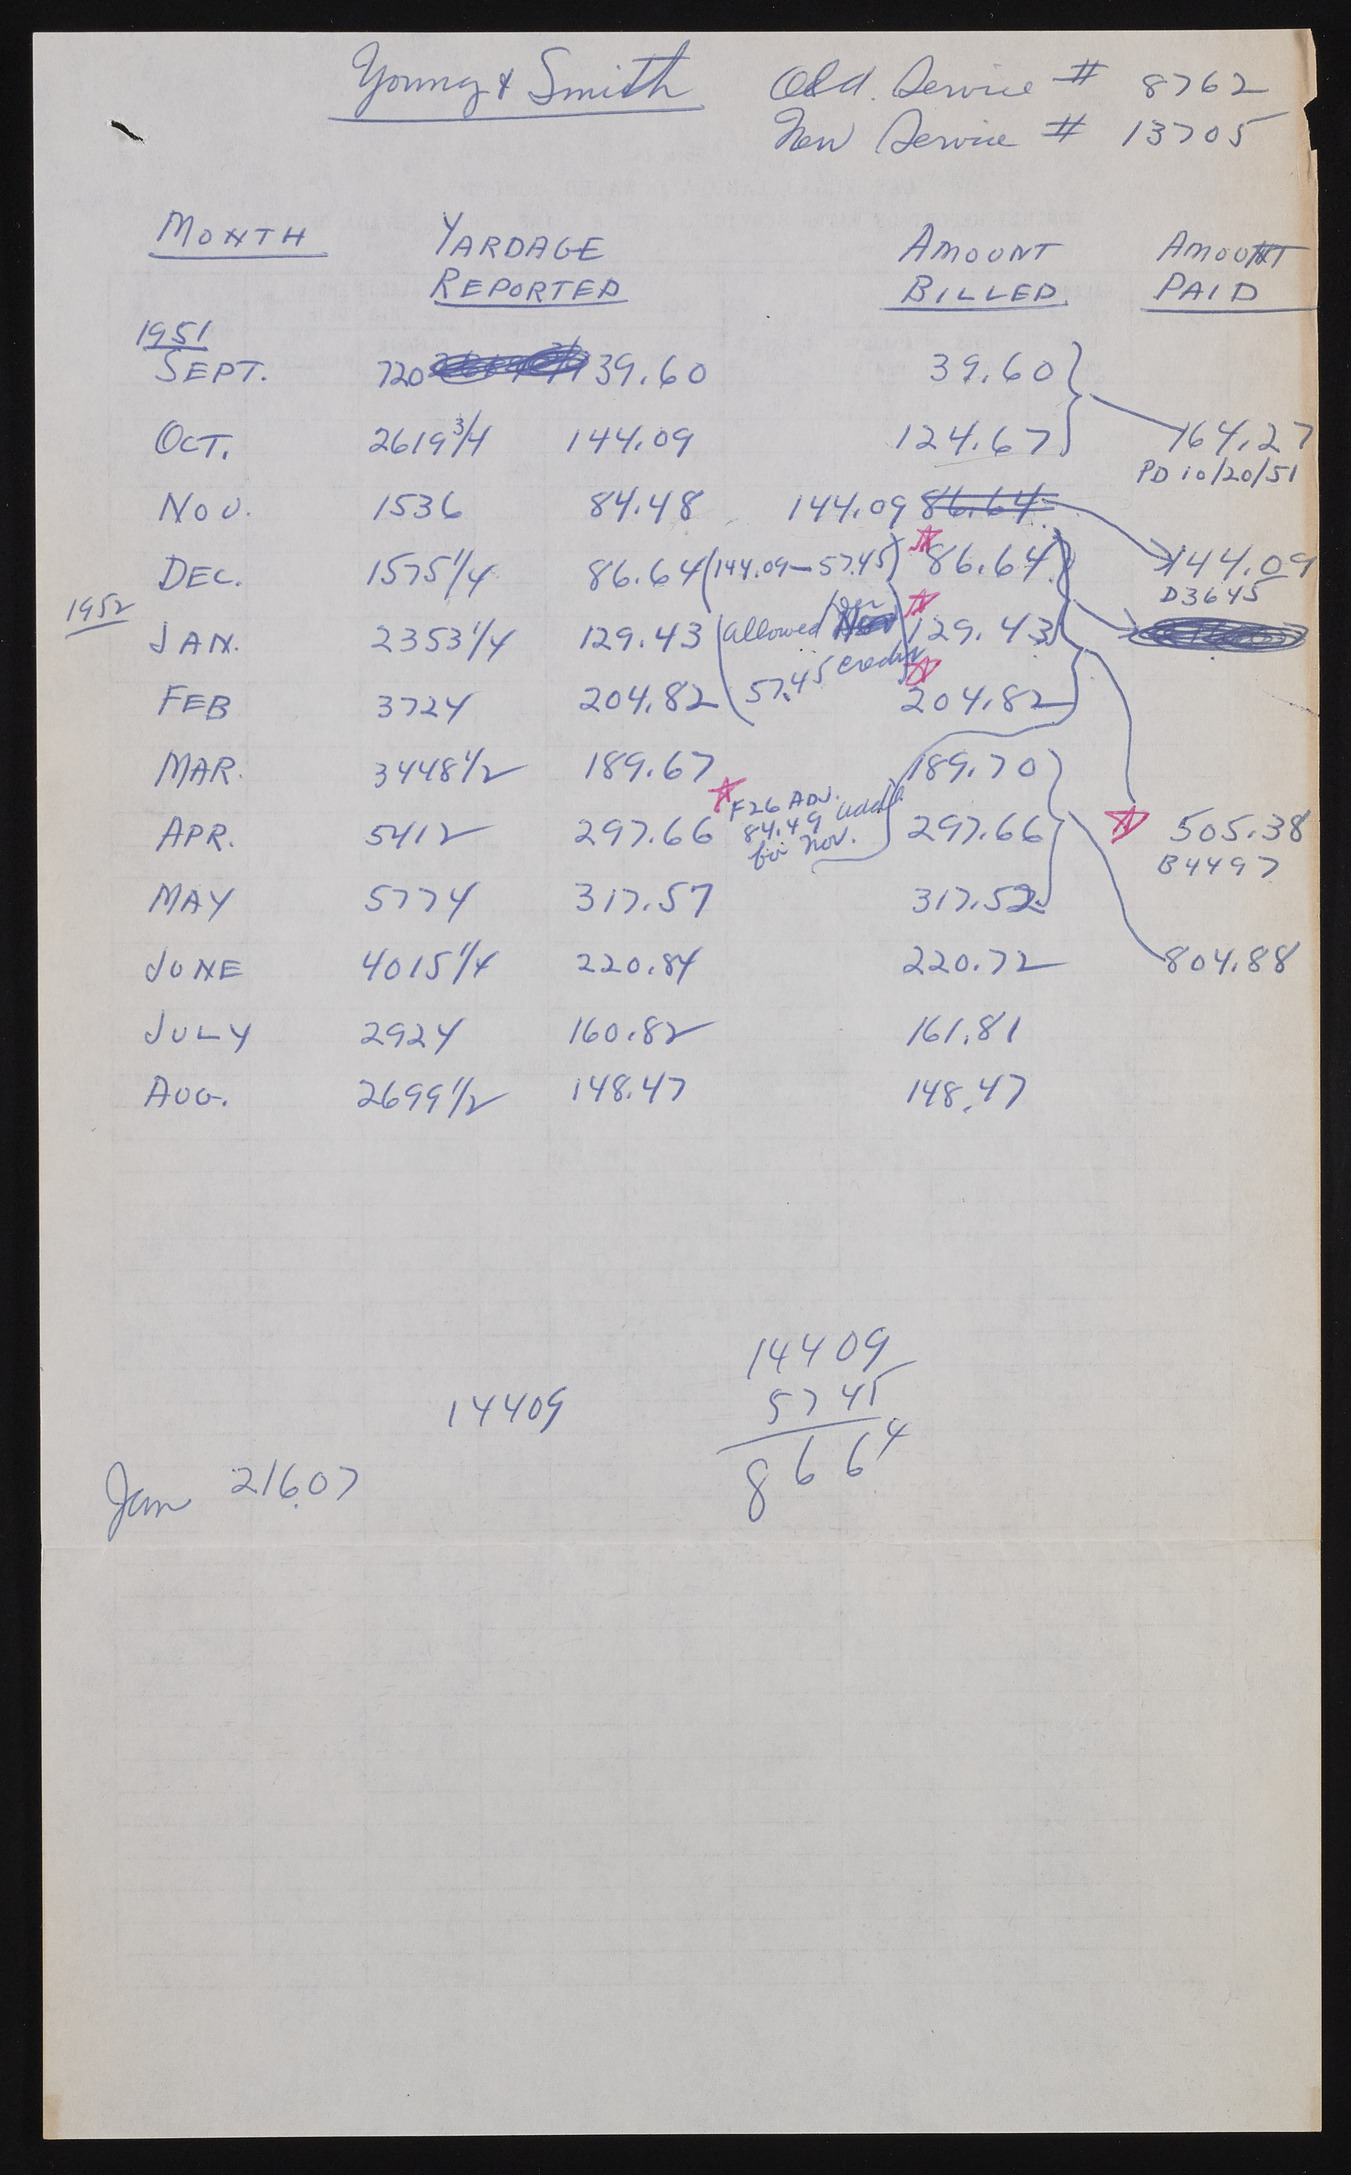 Young & Smith Old Service # 8762
New Service # 13705
MONTH YARDAGE REPORTED AMOUNT BILLED AMOUNT PAID
1951
SEPT. 720 39.60 39.60
OCT. 2619 3/4 144.09 124.67 164.27
PD 10/20/51
NOV. 1536 84.48 144.09 86.64
DEC. 1575 1/4 86.64 (144.09-57.45) 86.64 144.09
D3645
1952
JAN. 2353 1/4 129.43 (allowed 129.43
57.45 credit
FEB 3724 204.82 204.82
MAR. 3448 1/2 189.67 189.70
F26 ADJ.
84.49 add'l
for Nov.
APR. 5412 297.66 297.66 505.38
B4497
MAY 5774 317.57 317.52
JUNE 4015 1/4 220.84 220.72 804.88
JULY 2924 160.82 161.81
AUG. 2699 1/2 148.47 148.47
14409
5745
8664
14409
Jan 216.07